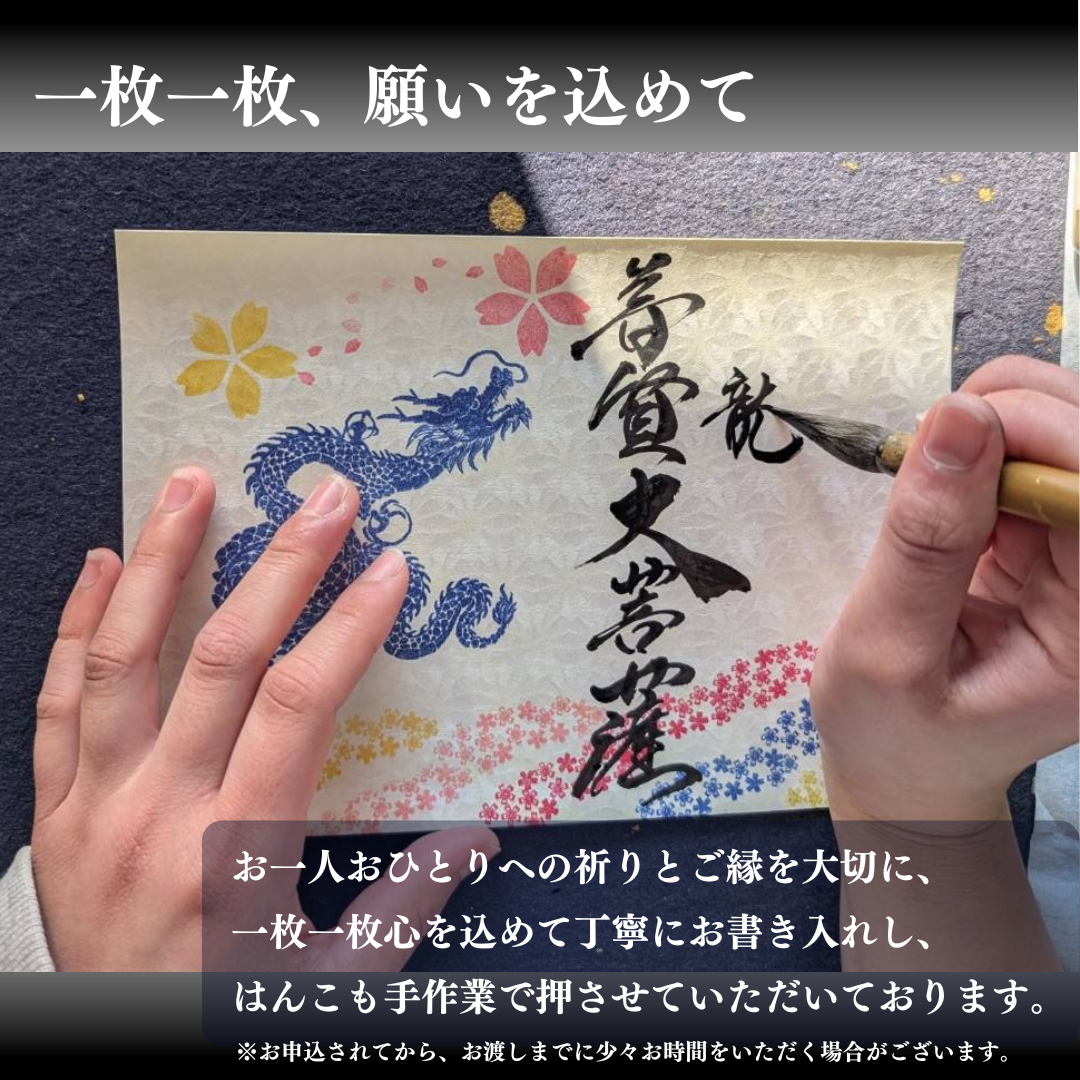 一枚一枚、願いを込めて
龍
普賢菩薩
お一人おひとりへの祈りとご縁を大切に、
一枚一枚心を込めて丁寧にお書き入れし、
はんこも手作業で押させていただいております。
※お申込されてから、お渡しまでに少々お時間をいただく場合がございます。